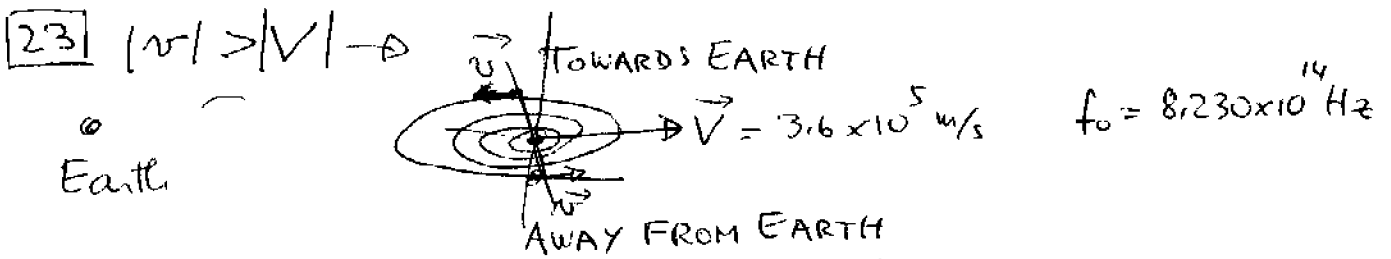 23 |v| > |V| →
v⃗ TOWARDS EARTH
V⃗ = 3.6 × 10⁵ m/s f₀ = 8,230×10¹⁴ Hz
Earth
v⃗
AWAY FROM EARTH